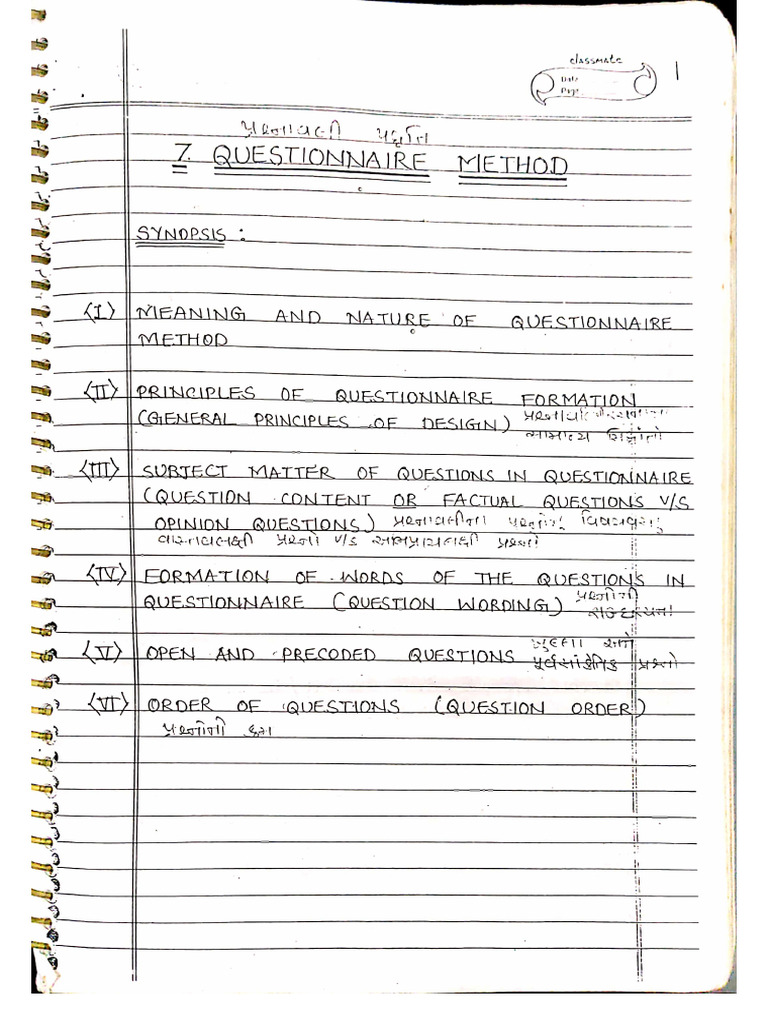 classmate
1
Date
Page
પ્રશ્નાવલી પદ્ધતિ
7. QUESTIONNAIRE METHOD
SYNOPSIS :
<I> MEANING AND NATURE OF QUESTIONNAIRE
METHOD
<II> PRINCIPLES OF QUESTIONNAIRE FORMATION
(GENERAL PRINCIPLES OF DESIGN)
સામાન્ય સિદ્ધાંતો
<III> SUBJECT MATTER OF QUESTIONS IN QUESTIONNAIRE
(QUESTION CONTENT OR FACTUAL QUESTIONS V/S
OPINION QUESTIONS) પ્રશ્નાવલીના પ્રશ્નોનું વિષયવસ્તુ
વાસ્તવલક્ષી પ્રશ્નો V/S અભિપ્રાયલક્ષી પ્રશ્નો
<IV> FORMATION OF WORDS OF THE QUESTIONS IN
QUESTIONNAIRE (QUESTION WORDING) પ્રશ્નોની
શબ્દરચના
<V> OPEN AND PRECODED QUESTIONS ખુલ્લા અને
પૂર્વસાંકેતિક પ્રશ્નો
<VI> ORDER OF QUESTIONS (QUESTION ORDER)
પ્રશ્નોનો ક્રમ